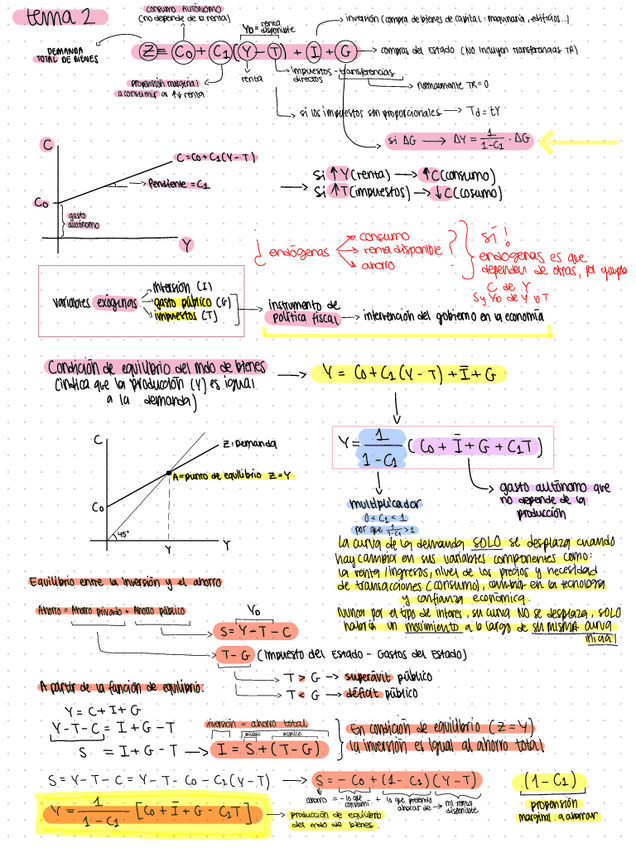 tema 2
consumo Autónomo
(no depende de la renta)
YD = renta disponible
inversión (compra de bienes de capital: maquinaria, edificios...)
DEMANDA
TOTAL DE BIENES
Z = C0 + C1 (Y - T) + I + G
compras del Estado (No incluyen transferencias TR)
propensión marginal
a consumir a ↑↓ renta
renta
impuestos - transferencias
directos
normalmente TR = 0
si los impuestos son proporcionales → Td = tY
si ΔG → ΔY = 1/1-C1 · ΔG
C
C = C0 + C1 (Y - T)
Pendiente = C1
C0
gasto
autónomo
Y
Si ↑Y (renta) → ↑C (consumo)
Si ↑T (impuestos) → ↓C (cosumo)
¿ endógenas
consumo
renta disponible
ahorro
?
sí!
endógenas es que
dependen de otras, por ejemplo
C de Y
S y YD de Y o T
variables exógenas
inversión (I)
gasto público (G)
impuestos (T)
instrumento de
política fiscal
intervención del gobierno en la economía
Condición de equilibrio del mdo de bienes
(indica que la producción (Y) es igual
a la demanda)
Y = C0 + C1 (Y - T) + Ī + G
C
Z: Demanda
A = punto de equilibrio Z = Y
C0
45°
Y
Y
Y = 1/1-C1 (C0 + Ī + G + C1T)
multiplicador
0 < C1 < 1
por que 1/1-C1 > 1
gasto autónomo que
no depende de la
producción
la curva de la demanda SOLO se desplaza cuando
hay cambios en sus variables componentes como:
la renta/ingresos, nivel de los precios y necesidad
de transacciones (consumo), cambia en la tecnología
y confianza económica.
Nunca por el tipo de interés, su curva NO se desplaza, SOLO
habría un movimiento a lo largo de su MISMA curva
inicial
Equilibrio entre la inversión y el ahorro
Ahorro = Ahorro privado + Ahorro público
YD
S = Y - T - C
T - G (Impuesto del Estado - Gastos del Estado)
T > G → superávit público
T < G → déficit público
A partir de la función de equilibrio:
Y = C + I + G
Y - T - C = I + G - T
inversión = ahorro total
S = I + G - T → I = S + (T - G)
En condición de equilibrio (Z = Y)
la inversión es igual al ahorro total
S = Y - T - C = Y - T - C0 - C1 (Y - T) → S = - C0 + (1 - C1) (Y - T)
(1 - C1)
propensión
marginal a ahorrar
ahorro = - lo que consumí + lo que pretendo ahorrar de → mi renta disponible
Y = 1/1-C1 [C0 + Ī + G - C1T]
producción de equilibrio
del mdo de bienes